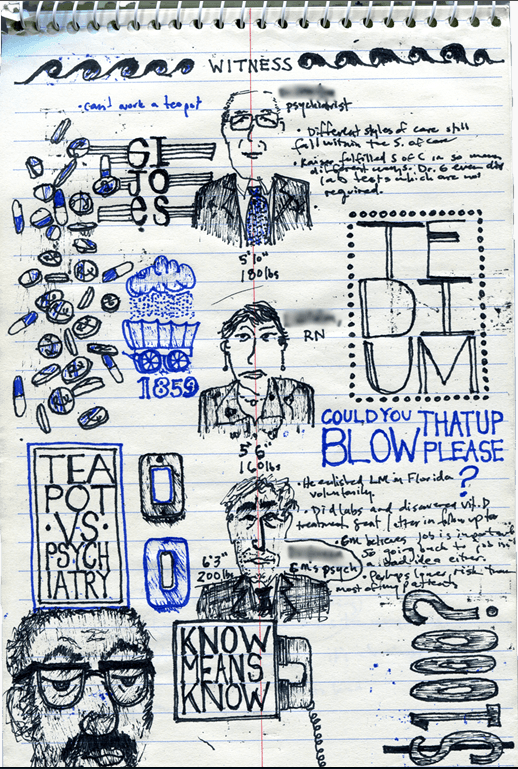 WITNESS
•can't work a teapot
psychiatrist
• Different styles of care still
fall within the S. of care
• Kaiser fulfilled S of C in so many
different ways. Dr. G even did
lab tests which are not
required.
GI
JO
es
5'10"
180lbs
TE
DI
UM
RN
1859
5'6"
160lbs
COULD YOU
BLOW
THAT UP
PLEASE
?
TEA
POT
•VS•
PSYCH
IATRY
• He enlisted LM in Florida
voluntarily.
• Did labs and discovered Vit. D
treatment sent letter in follow up to
• GM believes job is important
so going back to job isn't
a bad idea either.
• Perhaps lower risk than
most of my patients
6'3"
200lbs
GM's psych
KNOW
MEANS
KNOW
$1000?